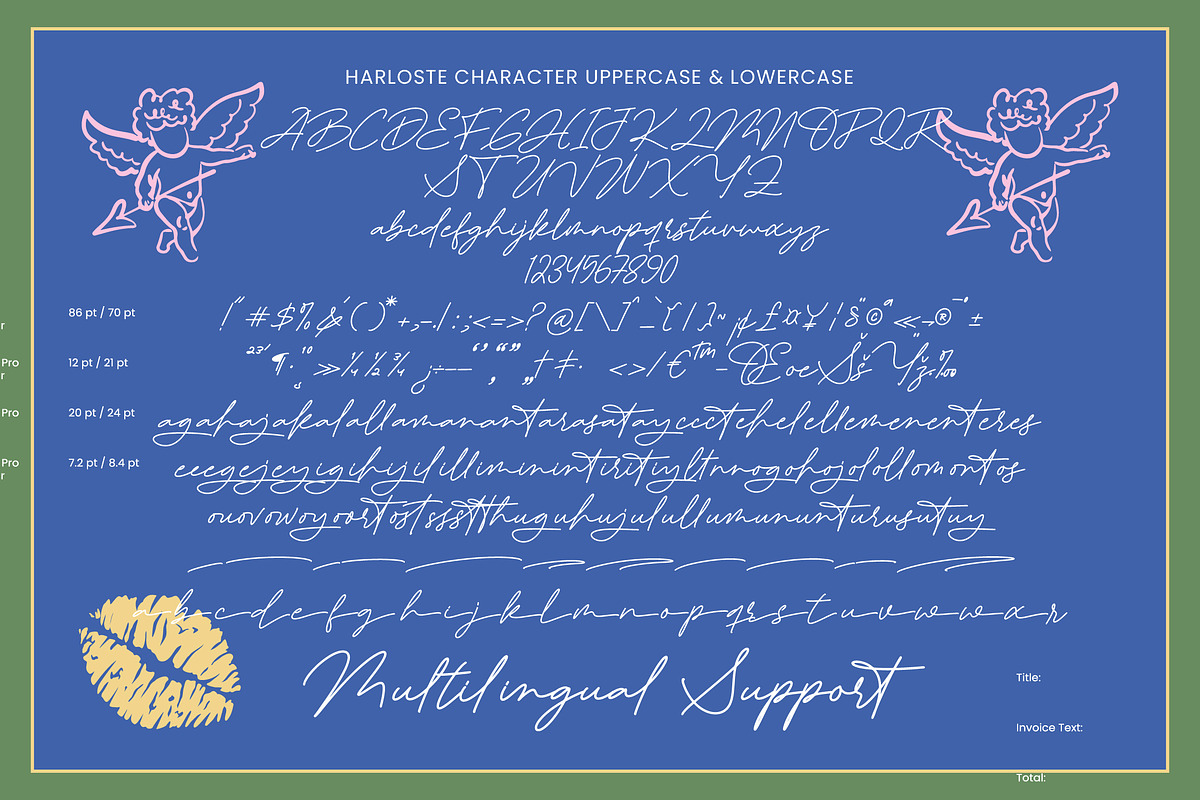 HARLOSTE CHARACTER UPPERCASE & LOWERCASE
ABCDEFGHIJKLMNOPQR
STUVWXYZ
abcdefghijklmnopqrstuvwxyz
1234567890
86 pt / 70 pt
!"#$%&'()*+,-./:;<=>?@[\]^_`{|}~¡¢£¤¥¦§¨©ª«¬®¯°±
r
²³´¶·¸¹º»¼½¾¿÷–—‘’‚“”„†‡· ‹›⁄€™−ŒœŠšŸž‰
Pro
r
12 pt / 21 pt
Pro
20 pt / 24 pt
agahajakalallamanantarasatayccctehelellemenenteres
Pro
r
7.2 pt / 8.4 pt
eeegejeyigihijililliminintiritiyltnnogohojolollomontos
ouovowoyoortostssstthuguhujulullumununturusutuy
abcdefghijklmnopqrstuvwwxr
Multilingual Support
Title:
Invoice Text:
Total: